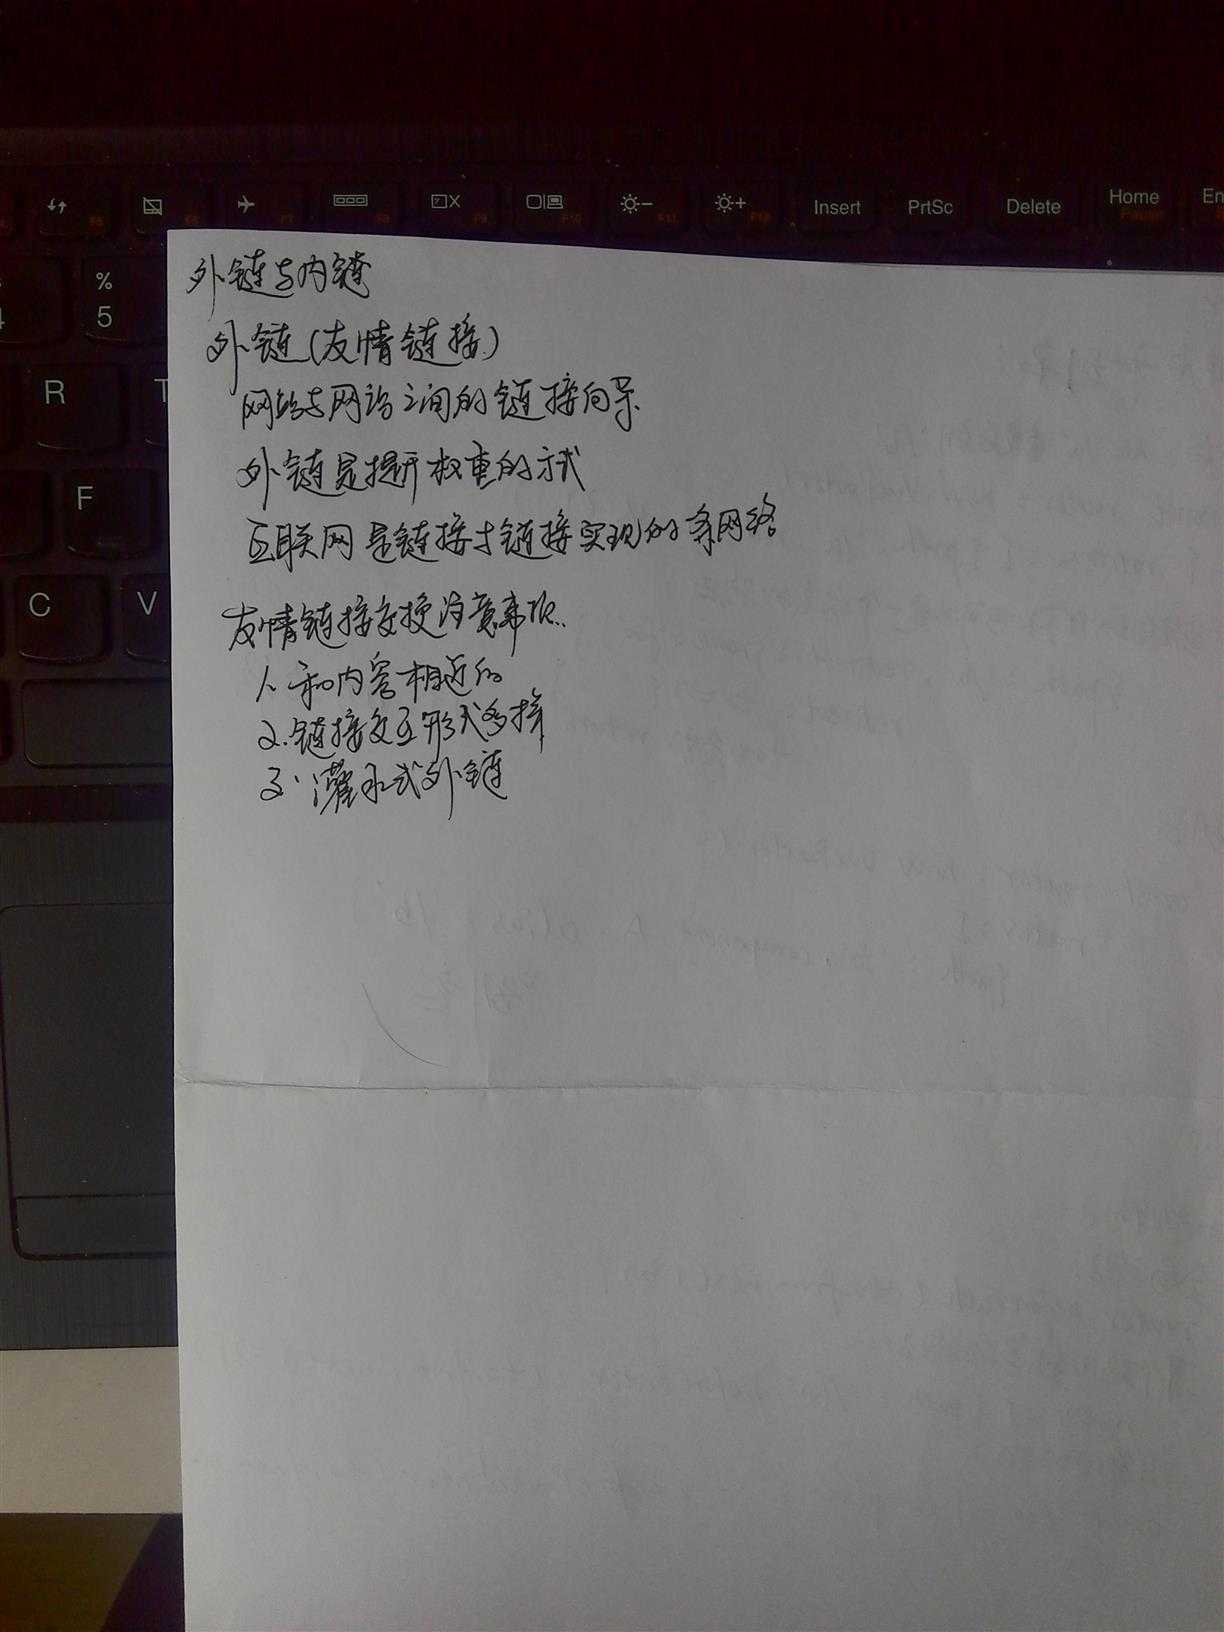 Insert PrtSc Delete Home
Pause
%
5
R T
F
C V
外链与内链
外链(友情链接)
网站与网站之间的链接向导
外链是提升权重的方式
互联网是链接才链接实现的条网络
友情链接交换注意事项.
1、和内容相近的
2.链接交互形式多样
3、灌水式外链